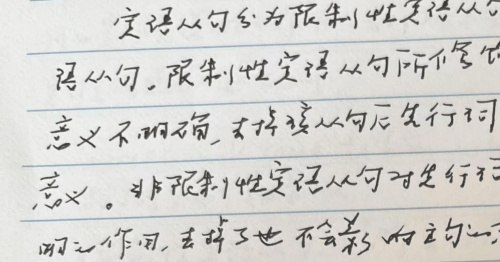 定语从句分为限制性定语从句
语从句。限制性定语从句所修饰
意义不明确，去掉该从句后先行词
意义。非限制性定语从句对先行词
明的作用，去掉了也不会影响主句